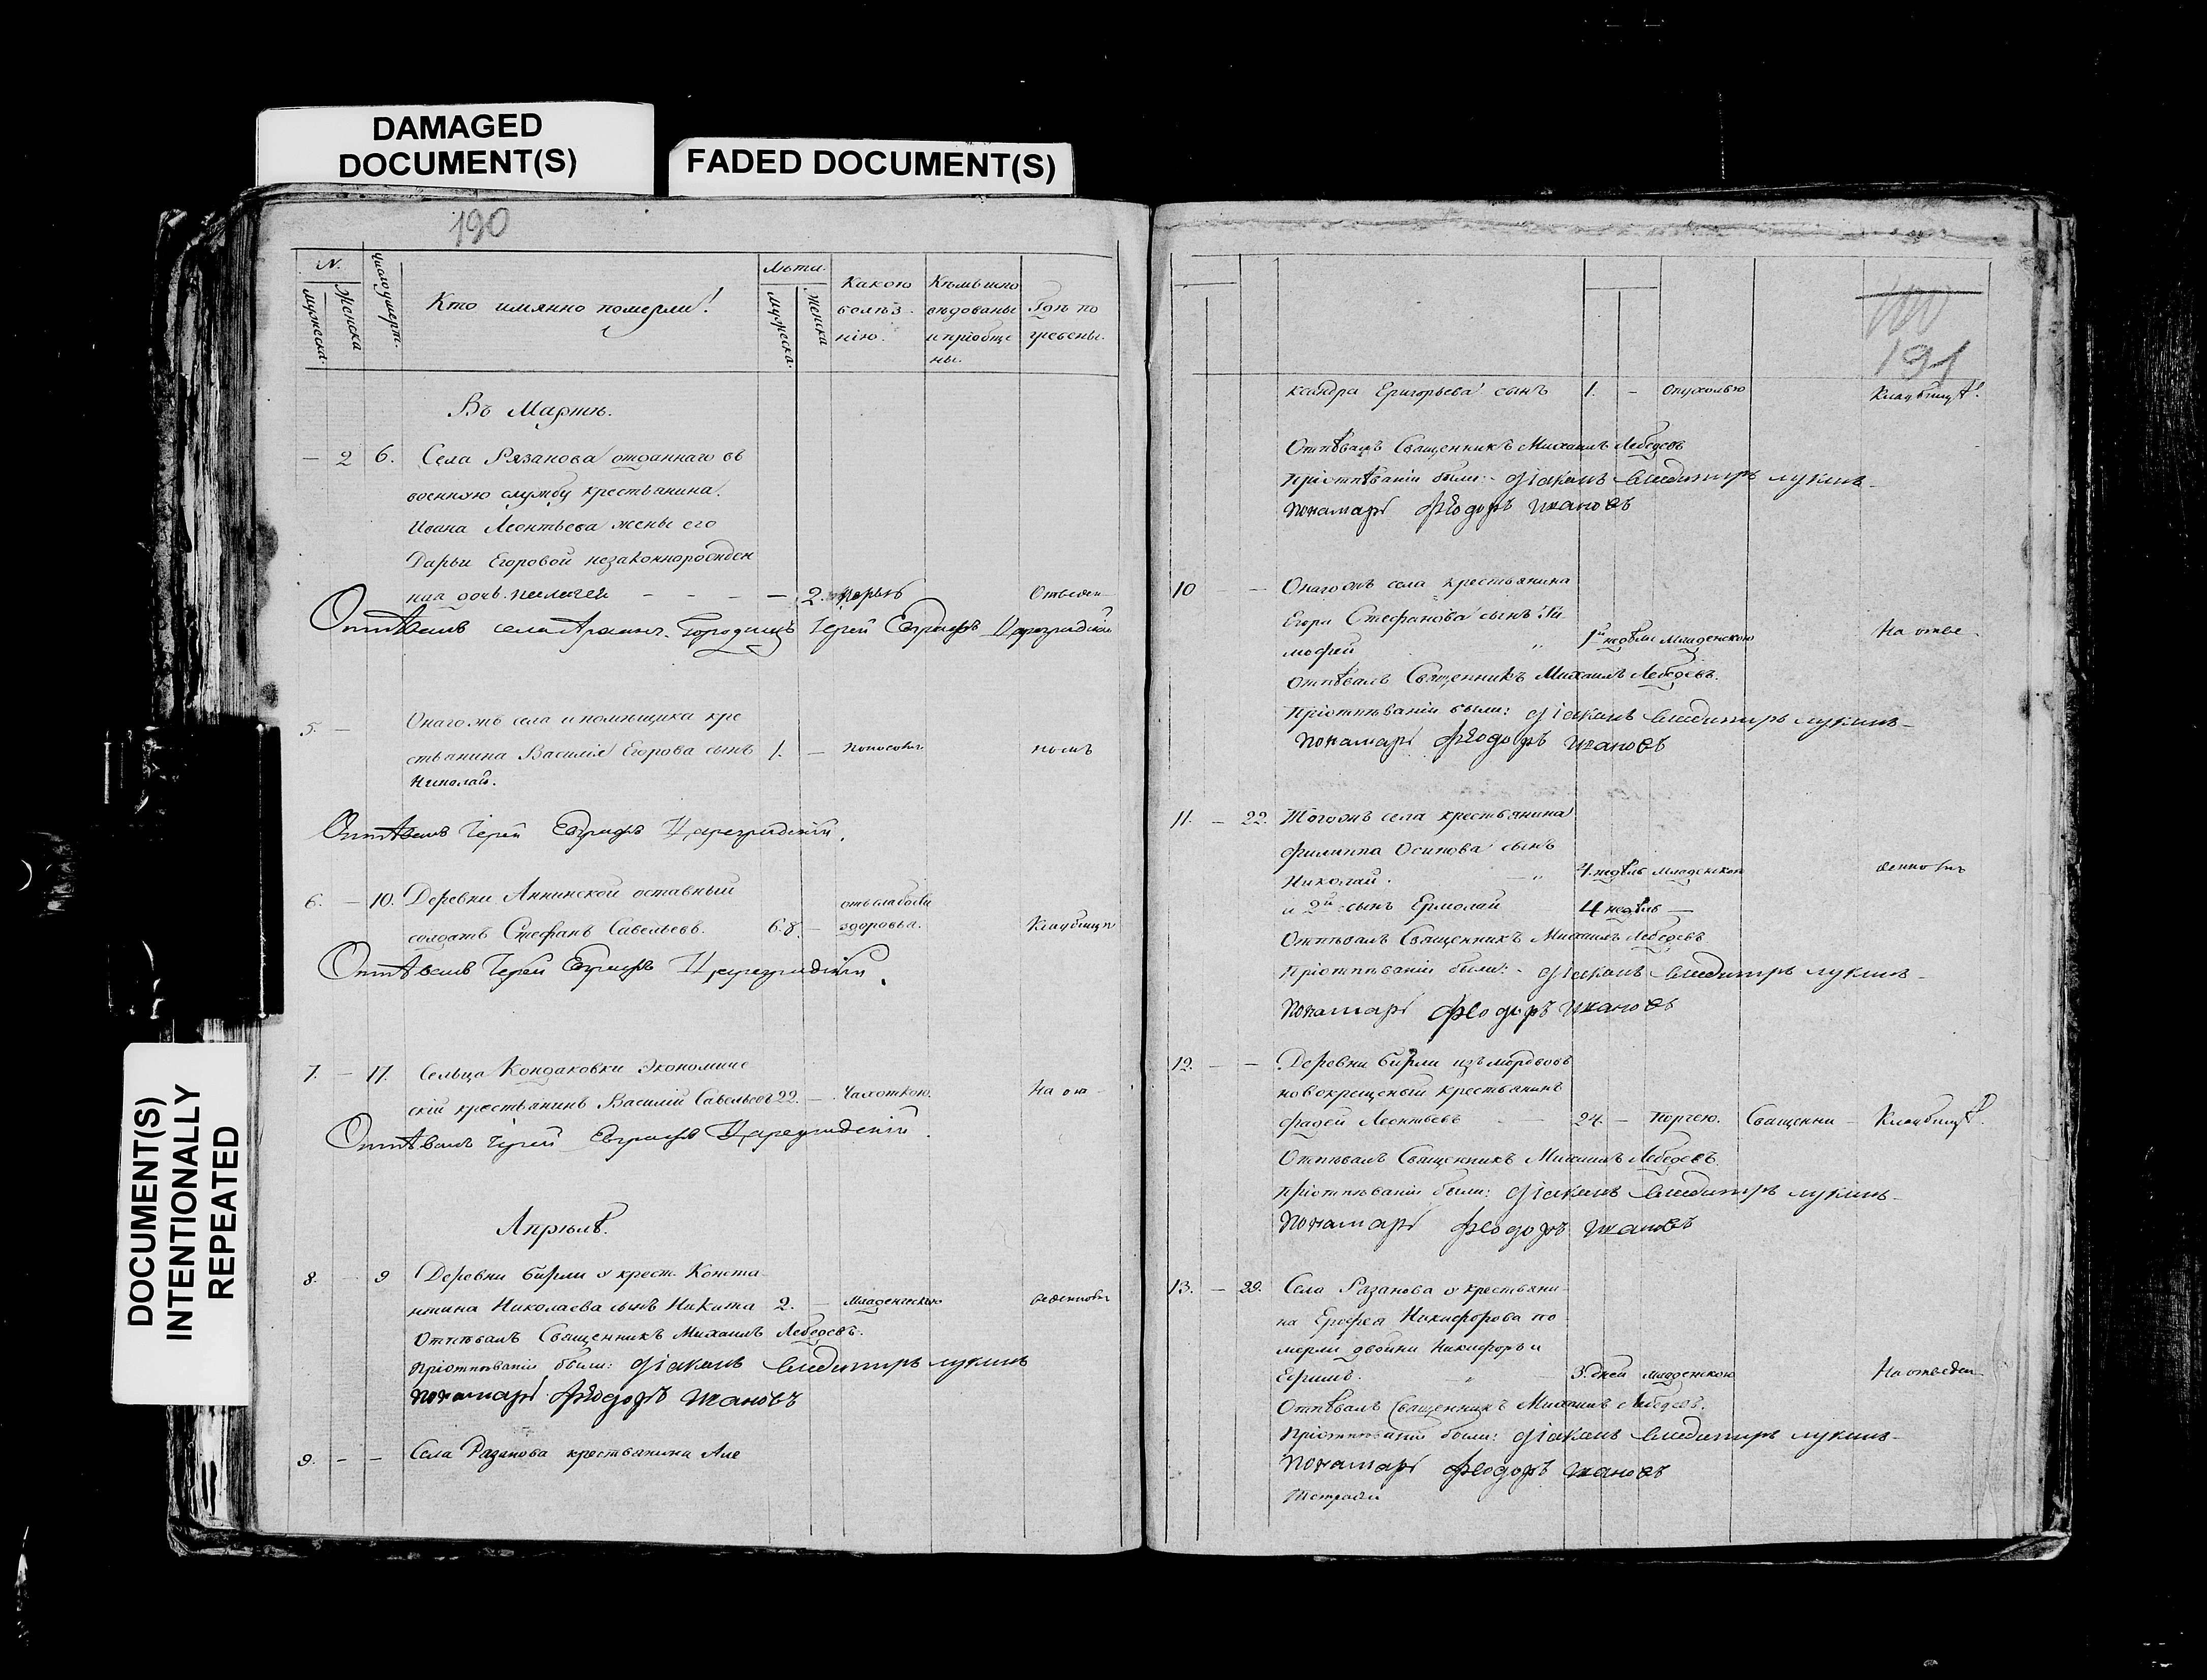 DAMAGED
DOCUMENT(S)
FADED DOCUMENT(S)
DOCUMENT(S)
INTENTIONALLY
REPEATED
190
№.
мужеска.
Женска
число умерт.
Кто имянно померли!
Лѣта.
мужеска.
женска
Какою
болѣз-
нію.
Кѣмъ испо
вѣдованы
и пріобще
ны.
Гдѣ по
гребены.
Въ Мартѣ.
— 2 6. Села Рязанова отданнаго въ
военную службу крестьянина
Ивана Леонтьева жены его
Дарьи Егоровой незаконнорожден
ная дочь - - - — 2. Отведен
Отпѣвалъ села Городищъ Іерей Евграфъ Цареградскій
5. — Онагожъ села и помѣщика кре
стьянина Василія Егорова сынъ 1. —
Николай.
Отпѣвалъ Іерей Евграфъ Цареградскій.
6. — 10. Деревни Аннинской оставный отъ слабости
солдатъ Стефанъ Савельевъ. 68. — здоровья. Кладбищѣ
Отпѣвалъ Іерей Евграфъ Цареградскій.
7. — 17. Сельца Кондаковки Экономиче
скій крестьянинъ Василій Савельевъ 22. — Чахоткою. На от-
Отпѣвалъ Іерей Евграфъ Цареградскій.
Апрѣль.
8. — 9 Деревни Бирли у крест. Конста-
нтина Николаева сынъ Никита 2. — Младенческою
Отпѣвалъ Священникъ Михаилъ Лебедевъ.
Приотпѣваніи были: Діаконъ Владимиръ Лукинъ
Пономарь Ѳеодоръ Ивановъ
9. — — Села Рязанова крестьянина Але
191
ксандра Григорьева сынъ 1. — Опухолью Кладбищѣ.
Отпѣвалъ Священникъ Михаилъ Лебедевъ
Приотпѣваніи были: Діаконъ Владимиръ Лукинъ
Пономарь Ѳеодоръ Ивановъ
10 — Онагожъ села крестьянина
Егора Стефанова сынъ Ти
мофей „ 1й недѣли Младенскою На отве-
Отпѣвалъ Священникъ Михаилъ Лебедевъ.
Приотпѣваніи были: Діаконъ Владимиръ Лукинъ
Пономарь Ѳеодоръ Ивановъ
11. — 22. Тогожъ села крестьянина
Филиппа Осипова сынъ
Николай. — „ 4. недѣль Младенскою
и 2й сынъ Ермолай 4 недѣль —
Отпѣвалъ Священникъ Михаилъ Лебедевъ
Приотпѣваніи были: Діаконъ Владимиръ Лукинъ
Пономарь Ѳеодоръ Ивановъ
12. — — Деревни Бирли изъ мордовъ
новокрещеный крестьянинъ
Фадей Леонтьевъ 24. — Священни — Кладбищѣ.
Отпѣвалъ Священникъ Михаилъ Лебедевъ.
Приотпѣваніи были: Діаконъ Владимиръ Лукинъ
Пономарь Ѳеодоръ Ивановъ
13. — 29. Села Рязанова у крестьяни-
на Ерофея Никифорова по-
мерли двойни Никифоръ и
Ефимъ. „ 3. дней младенскою На отведен-
Отпѣвалъ Священникъ Михаилъ Лебедевъ.
Приотпѣваніи были: Діаконъ Владимиръ Лукинъ
Пономарь Ѳеодоръ Ивановъ